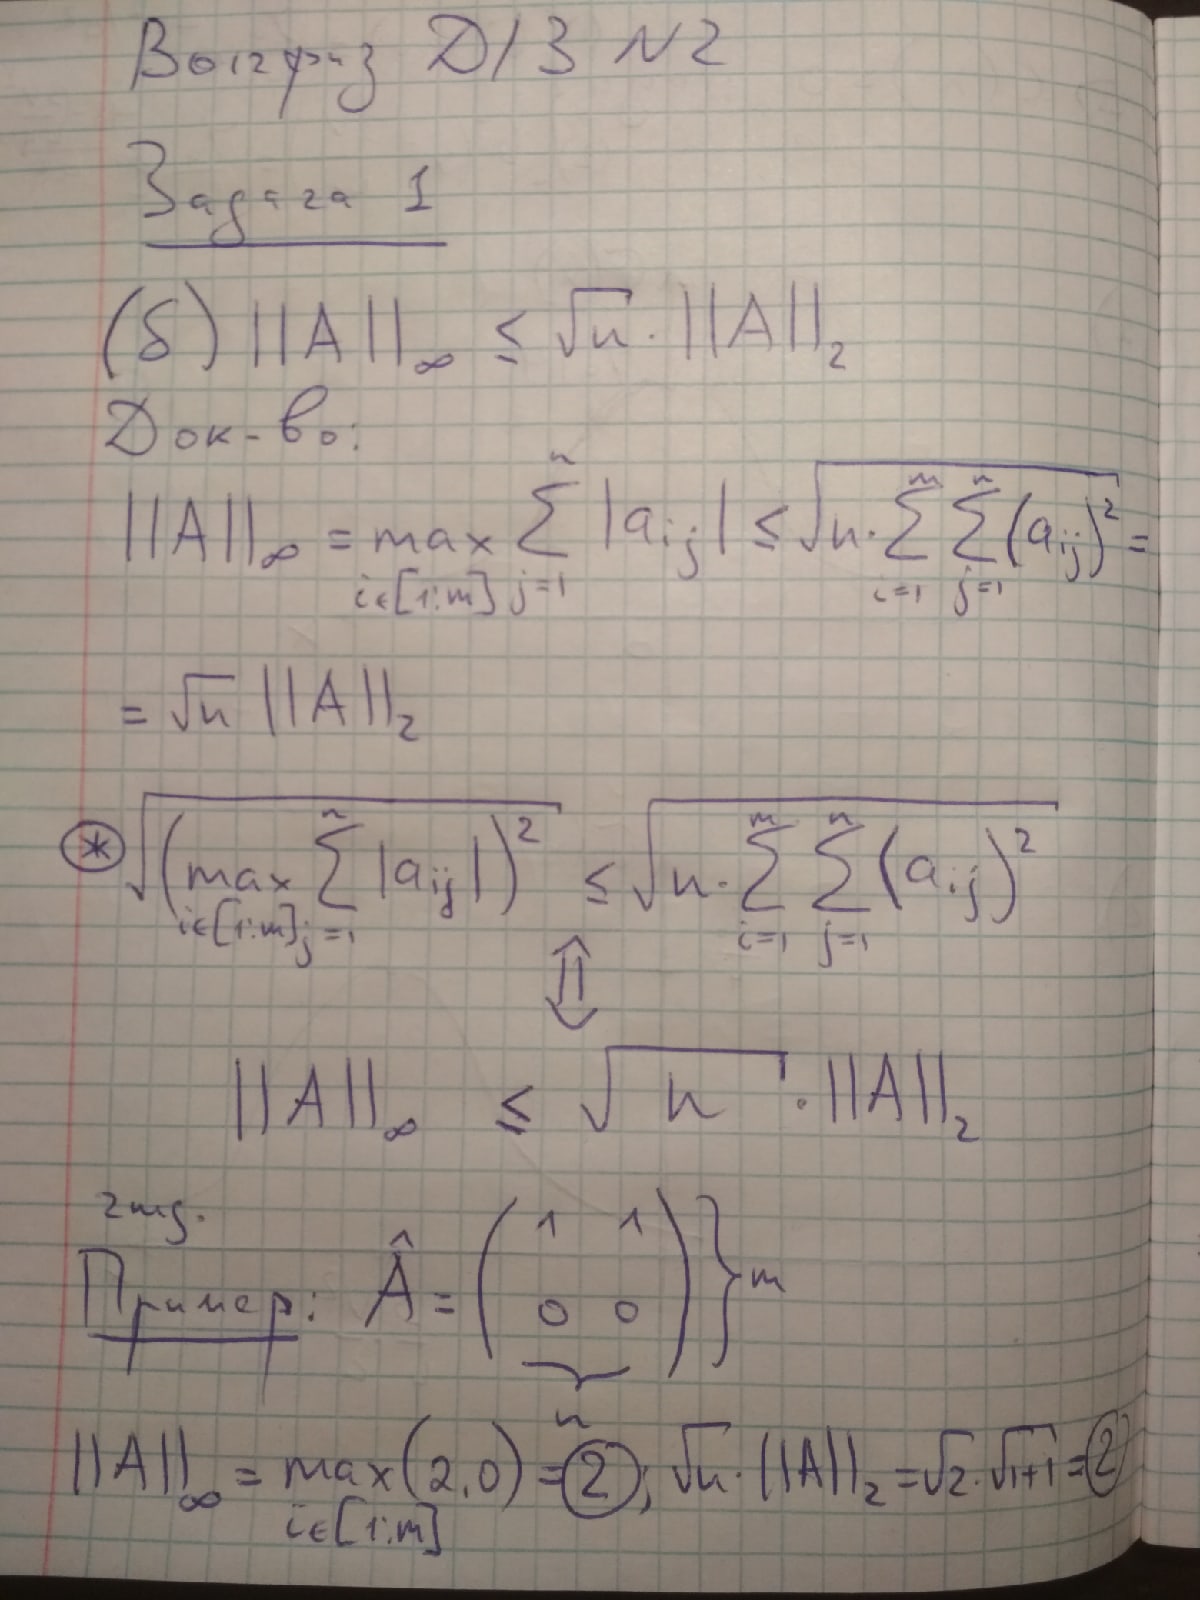 Вычфиз Д/З №2
Задача 1
(б) ||A||_∞ ≤ √n · ||A||_2
Док-во:
||A||_∞ = max_{i∈[1:m]} Σ_{j=1}^{n} |a_{ij}| ≤ √(n · Σ_{i=1}^{m} Σ_{j=1}^{n} (a_{ij})^2) =
= √n ||A||_2
⊛ √((max_{i∈[1:m]} Σ_{j=1}^{n} |a_{ij}|)^2) ≤ √(n · Σ_{i=1}^{m} Σ_{j=1}^{n} (a_{ij})^2)
⇕
||A||_∞ ≤ √n · ||A||_2
чтд.
Пример: Â = (1 1
0 0) } m
n
||A||_∞ = max_{i∈[1:m]} (2,0) = 2; √n · ||A||_2 = √2 · √1+1 = 2